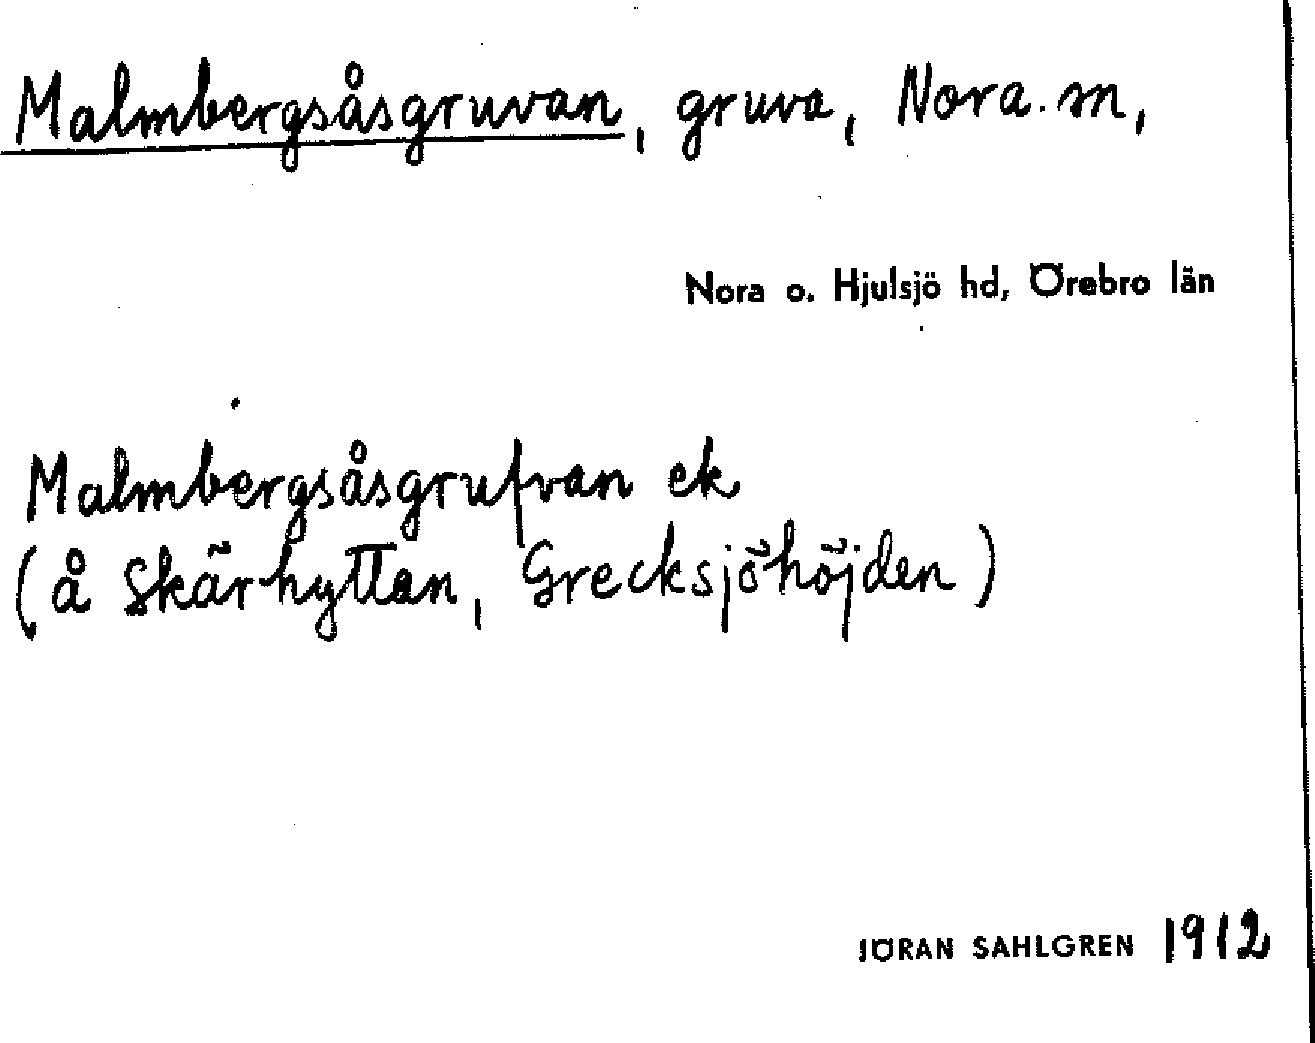 Malmbergsåsgruvan, gruva, Nora. sn,
Nora o. Hjulsjö hd, Örebro län
Malmbergsåsgrufvan ek
(å Skärhyttan, Grecksjöhöjden)
JÖRAN SAHLGREN 1912